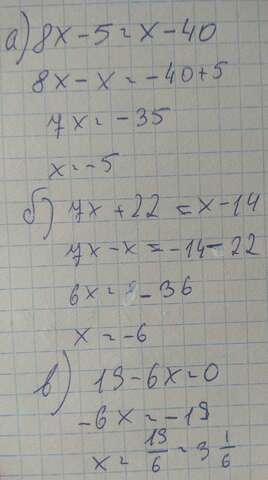 а) 8x - 5 = x - 40
8x - x = -40 + 5
7x = -35
x = -5
б) 7x + 22 = x - 14
7x - x = -14 - 22
6x = - 36
x = -6
в) 19 - 6x = 0
-6x = -19
x = 19/6 = 3 1/6